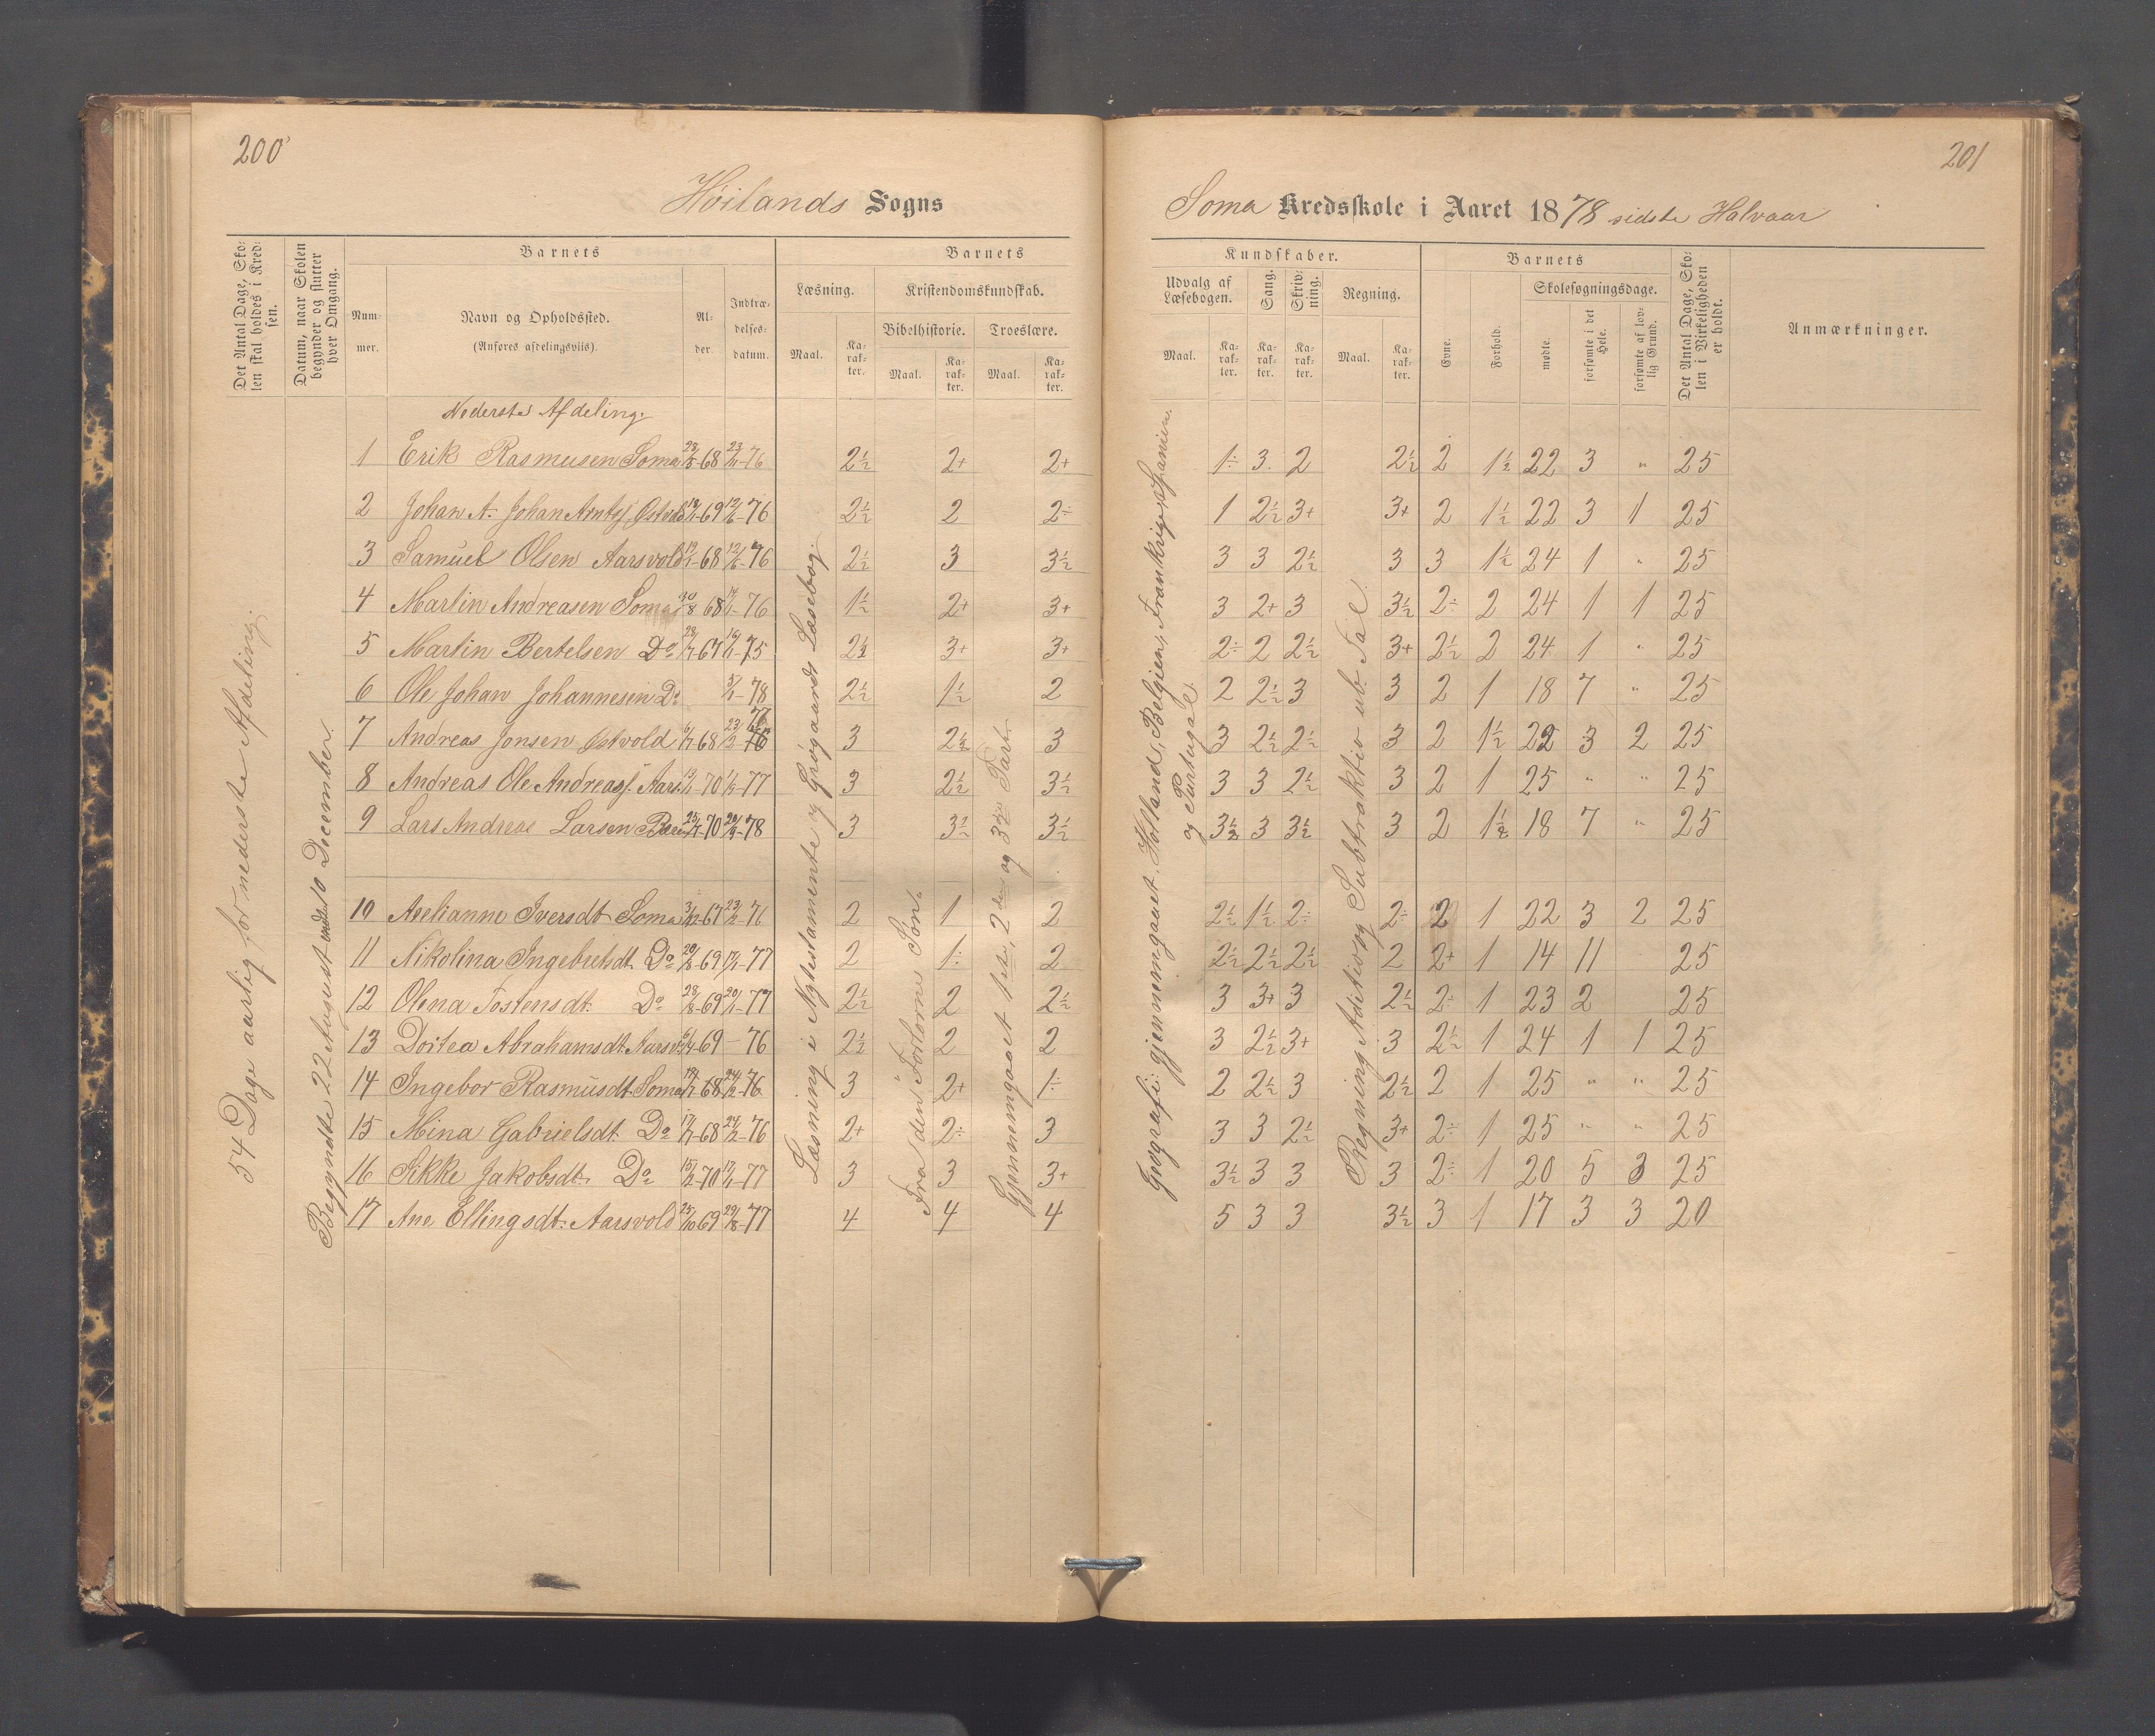 200
201
Høilands Sogns
Soma Kredsskole i Aaret 1878 sidste Halvaar
Det Antal Dage, Skolen skal holdes i Kredsen.
Datum, naar Skolen begynder og slutter hver Omgang.
Barnets
Nummer.
Navn og Opholdssted.
(Anføres afdelingsviis).
Alder.
Indtrædelsesdatum.
Barnets
Læsning.
Maal.
Karakter.
Kristendomskundskab.
Bibelhistorie.
Maal.
Karakter.
Troeslære.
Maal.
Karakter.
Kundskaber.
Udvalg af Læsebogen.
Maal.
Karakter.
Sang.
Karakter.
Skrivning.
Karakter.
Regning.
Maal.
Karakter.
Barnets
Evne.
Forhold.
Skolesøgningsdage.
mødte.
forsømte i det Hele.
forsømte af lovlig Grund.
Det Antal Dage, Skolen i Virkeligheden er holdt.
Anmærkninger.
54 Dage aarlig for nederste Afdeling.
Begyndte 22 August endte 10 December.
Læsning i Nytestamente og Grøgaards Læsebog.
Fra den Fortorne Søn.
Gjennemgaaet 1ste, 2den og 3die Part.
Geografi: gjennemgaaet. Holland, Belgien, Frankrige, Spanien
og Purtugal.
Regning Adition og Subtraktio ub. Tal.
Nederste Afdeling.
1 Erik Rasmusen Soma 68 76 2½ 2+ 2+ 1÷ 3 2 2½ 2 1½ 22 3 " 25
2 Johan A. Johan Arntsj. Østvold 69 76 2½ 2 2÷ 1 2½ 3+ 3+ 2 1½ 22 3 1 25
3 Samuel Olsen Aarsvold 68 76 2½ 3 3½ 3 3 2½ 3 3 1½ 24 1 " 25
4 Martin Andreasen Soma 68 76 1½ 2+ 3+ 3 2+ 3 3½ 2÷ 2 24 1 1 25
5 Martin Bertelsen Do 67 75 2½ 3+ 3+ 2÷ 2 2½ 3+ 2½ 2 24 1 " 25
6 Ole Johan Johannesen Do 78 2½ 1½ 2 2 2½ 3 3 2 1 18 7 " 25
7 Andreas Jonsen Østvold 68 77 3 2½ 3 3 2½ 2½ 3 2 1½ 22 3 2 25
8 Andreas Ole Andreasj. Aars. 70 77 3 2½ 3½ 3 3 2½ 3 2 1 25 " " 25
9 Lars Andreas Larsen 70 78 3 3½ 3½ 3½ 3 3½ 3 2 1½ 18 7 " 25
10 Aelianne Iversdt. Soma 67 76 2 1 2 2½ 1½ 2÷ 2÷ 2 1 22 3 2 25
11 Nikolina Ingebretsdt. Do 69 77 2 1÷ 2 2½ 2½ 2½ 2 2+ 1 14 11 25
12 Olena Tostensdt. Do 69 77 2½ 2 2½ 3 3+ 3 2½ 2÷ 1 23 2 25
13 Dortea Abrahamsdt. Aarsv. 69 – 76 2½ 2 2 3 2½ 3+ 3 2½ 1 24 1 1 25
14 Ingebor Rasmusdt. Soma 68 76 3 2+ 1÷ 2 2½ 3 2½ 2 1 25 " " 25
15 Mina Gabrielsdt. Do 68 76 2+ 2÷ 3 3 3 2½ 3+ 2÷ 1 25 " " 25
16 Sikke Jakobsdt. Do 70 77 3 3 3+ 3½ 3 3 3 2÷ 1 20 5 3 25
17 Ane Ellingsdt. Aarsvold 69 77 4 4 4 5 3 3 3½ 3 1 17 3 3 20